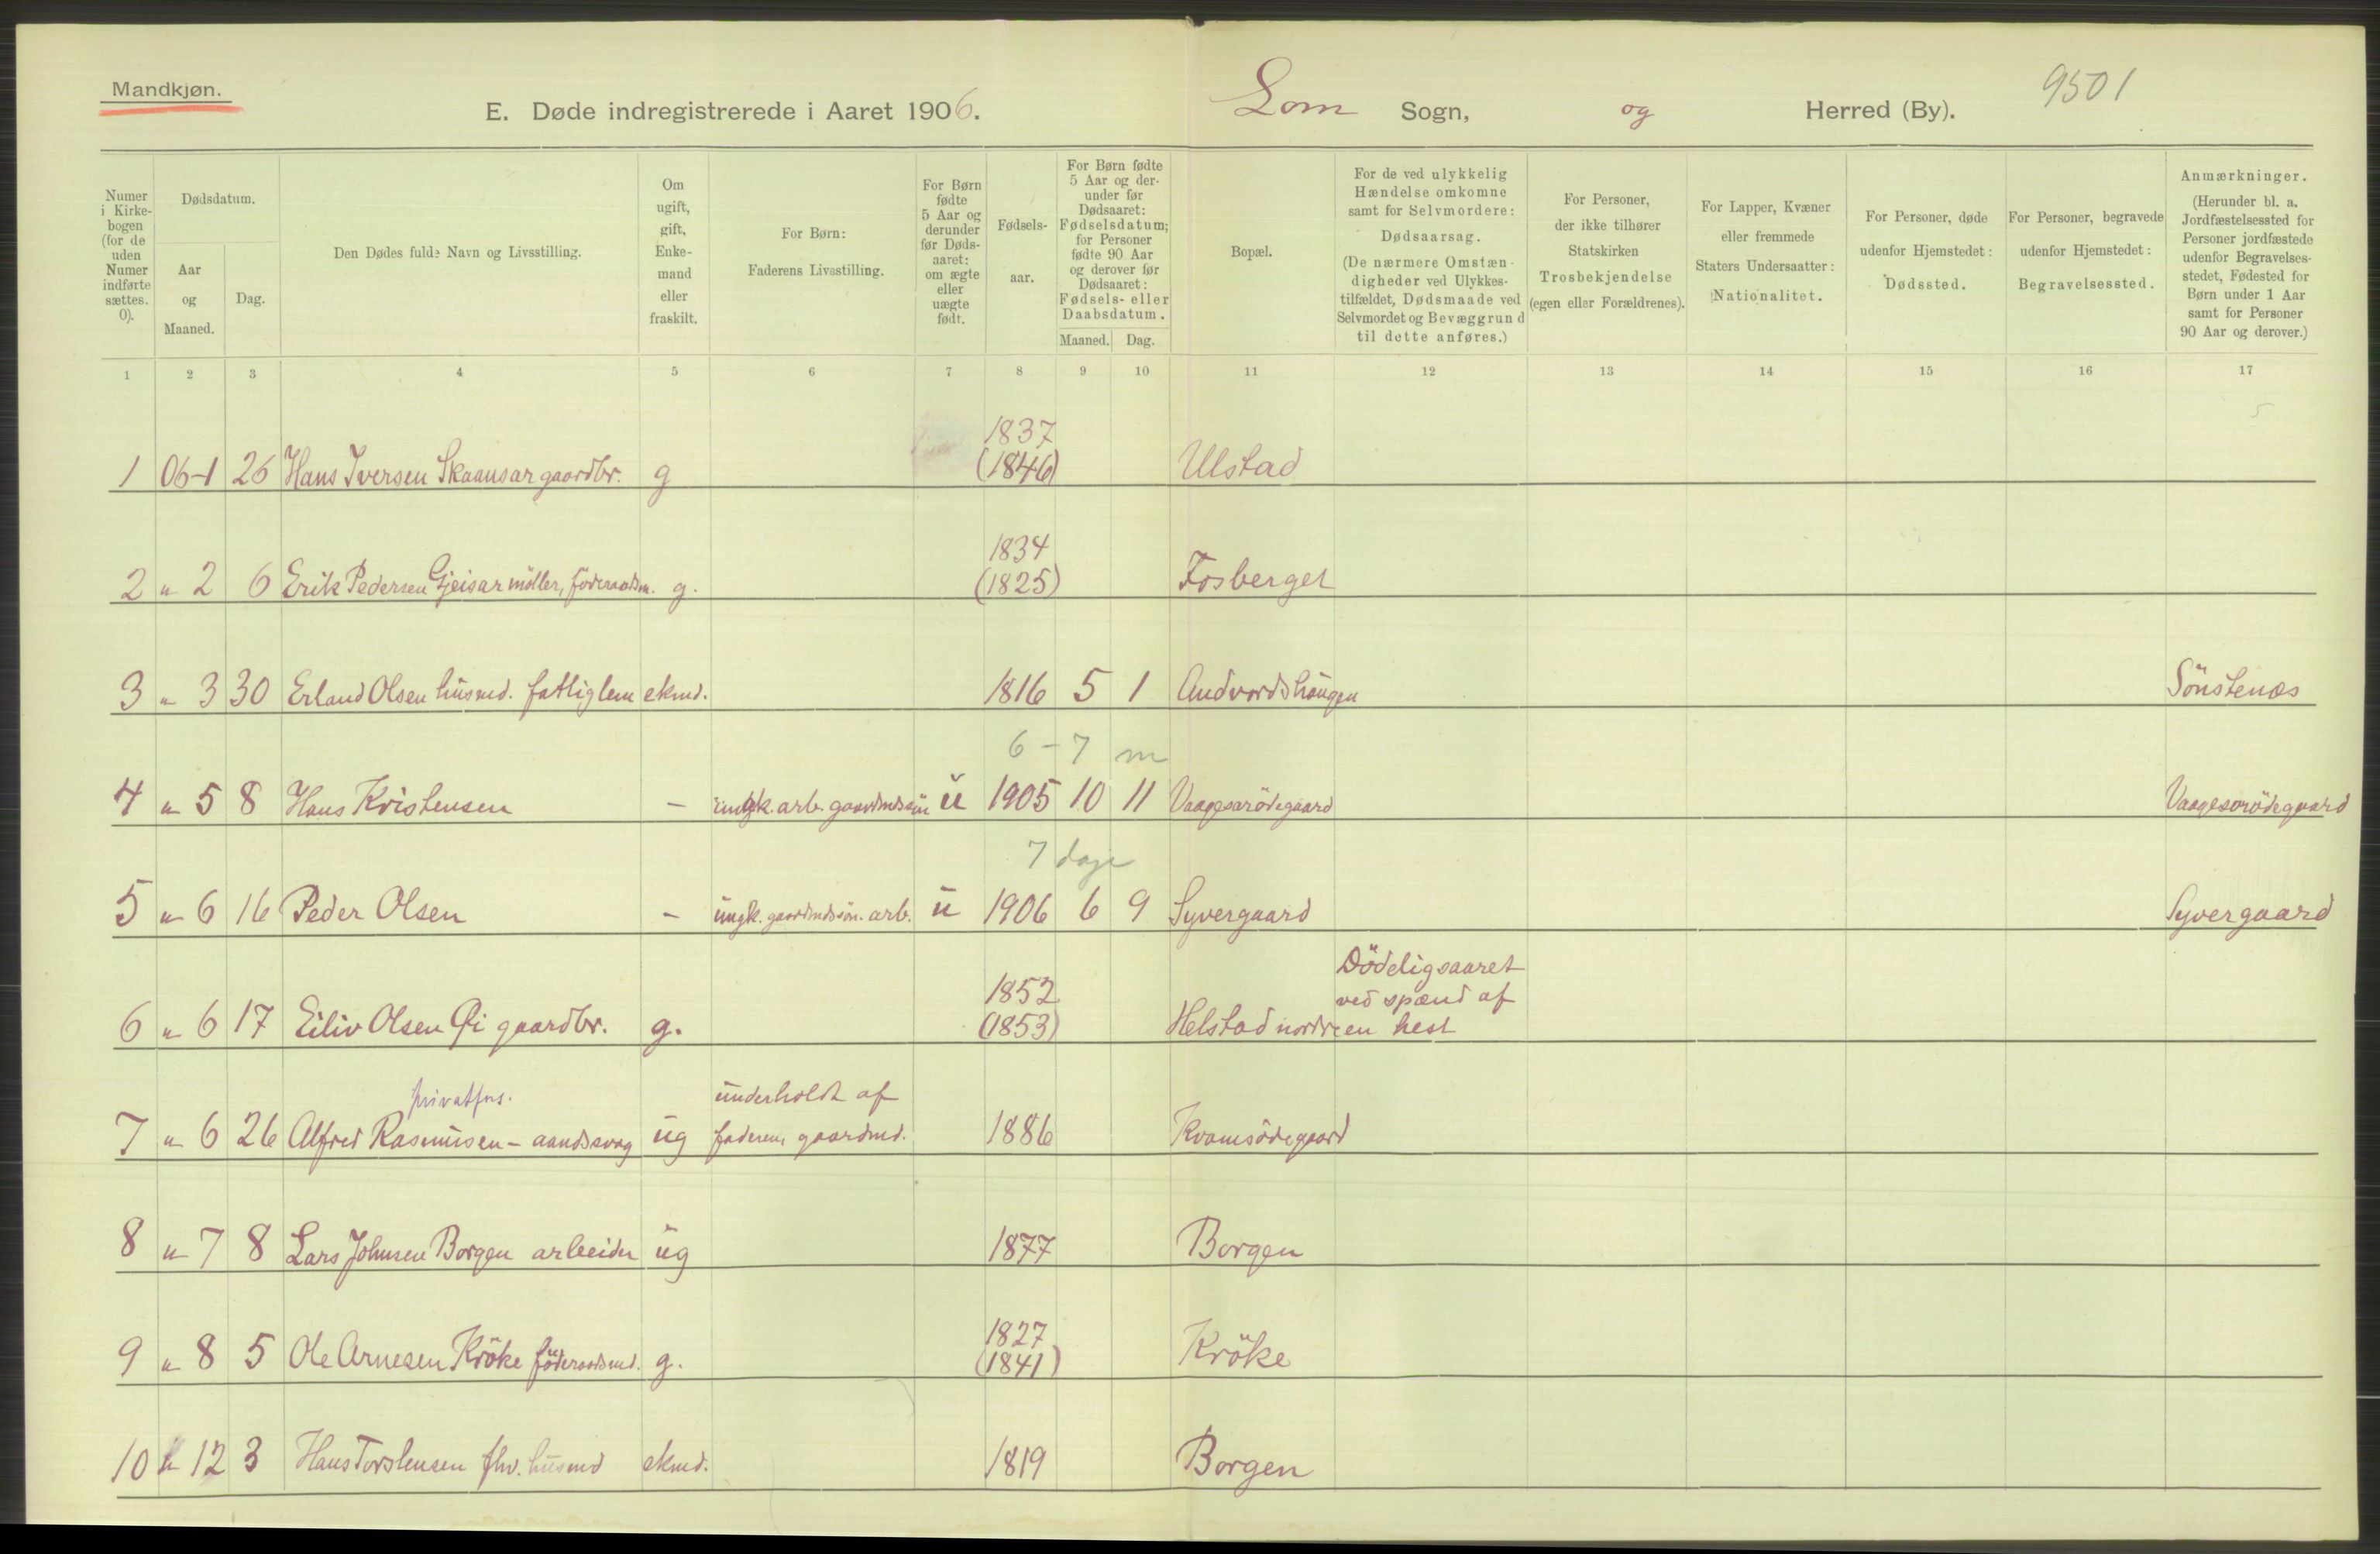 Mandkjøn.
E. Døde indregistrerede i Aaret 1906. Lom Sogn, og Herred (By). 9501
Numer i Kirkebogen (for de uden Numer indførte sættes. 0).
Dødsdatum.
Aar og Maaned.
Dag.
Den Dødes fulde Navn og Livsstilling.
Om ugift, gift, Enkemand eller fraskilt.
For Børn: Faderens Livsstilling.
For Børn fødte 5 Aar og derunder før Dødsaaret: om ægte eller uægte født.
Fødselsaar.
For Børn fødte 5 Aar og derunder før Dødsaaret: Fødselsdatum; for Personer fødte 90 Aar og derover før Dødsaaret: Fødsels- eller Daabsdatum.
Maaned. Dag.
Bopæl.
For de ved ulykkelig Hændelse omkomne samt for Selvmordere: Dødsaarsag. (De nærmere Omstændigheder ved Ulykkestilfældet, Dødsmaade ved Selvmordet og Bevæggrund til dette anføres.)
For Personer, der ikke tilhører Statskirken Trosbekjendelse (egen eller Forældrenes).
For Lapper, Kvæner eller fremmede Staters Undersaatter: Nationalitet.
For Personer, døde udenfor Hjemstedet: Dødssted.
For Personer, begravede udenfor Hjemstedet: Begravelsessted.
Anmærkninger. (Herunder bl. a. Jordfæstelsessted for Personer jordfæstede udenfor Begravelsesstedet, Fødested for Børn under 1 Aar samt for Personer 90 Aar og derover.)
1 2 3 4 5 6 7 8 9 10 11 12 13 14 15 16 17
1837
1 06-1 26 Hans Iversen Skaansar gaardbr. g (1846) Ulstad
1834
2 " 2 6 Erik Pedersen Gjeisar möller, föderaadsm. g. (1825) Fosberget
3 " 3 30 Erland Olsen husmd. fattiglem ekmd. 1816 5 1 Andvordshaugen Sönstenæs
6 - 7 m
4 " 5 8 Hans Kristensen - ungk. arb. gaardmdssön u 1905 10 11 Vaagesarödegaard Vaagesarödegaard
7 dage
5 " 6 16 Peder Olsen - ungk. gaardmdssön. arb. u 1906 6 9 Syvergaard Syvergaard
Dödeligsaaret
1852 ved spænd af
6 " 6 17 Eiliv Olsen Qi gaardbr. g. (1853) Helstad nordre en hest
privatfrs. underholdt af
7 " 6 26 Alfred Rasmusen - aandssvag ug faderen, gaardmd. 1886 Kvamsödegaard
8 " 7 8 Lars Johnsen Borgen arbeider ug 1877 Borgen
1827
9 " 8 5 Ole Arnesen Kröke föderaadsmd. g. (1841) Kröke
10 " 12 3 Hans Torstensen fhv. husmd ekmd. 1819 Borgen